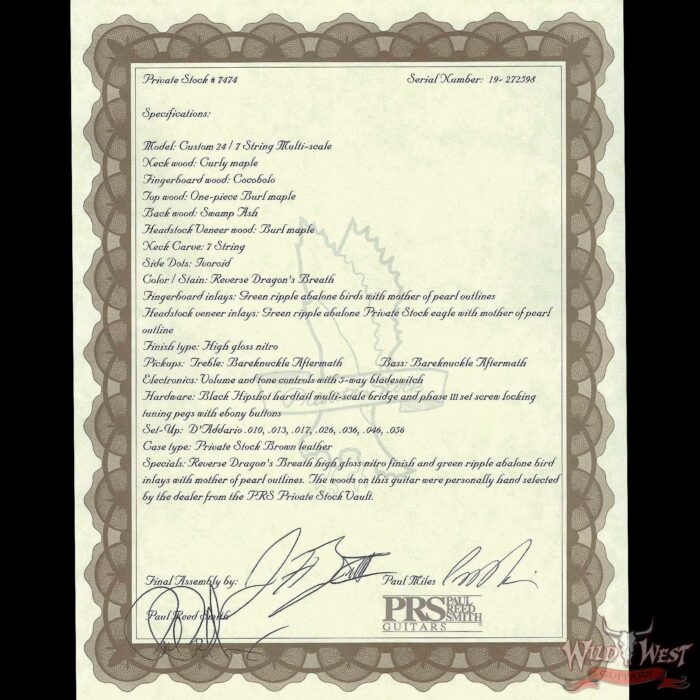 Private Stock # 7474 Serial Number: 19- 272598
Specifications:
Model: Custom 24 / 7 String Multi-scale
Neck wood: Curly maple
Fingerboard wood: Cocobolo
Top wood: One-piece Burl maple
Back wood: Swamp Ash
Headstock Veneer wood: Burl maple
Neck Carve: 7 String
Side Dots: Ivoroid
Color / Stain: Reverse Dragon's Breath
Fingerboard inlays: Green ripple abalone birds with mother of pearl outlines
Headstock veneer inlays: Green ripple abalone Private Stock eagle with mother of pearl
outline
Finish type: High gloss nitro
Pickups: Treble: Bareknuckle Aftermath Bass: Bareknuckle Aftermath
Electronics: Volume and tone controls with 5-way bladeswitch
Hardware: Black Hipshot hardtail multi-scale bridge and phase III set screw locking
tuning pegs with ebony buttons
Set-Up: D'Addario .010, .013, .017, .026, .036, .046, .056
Case type: Private Stock Brown leather
Specials: Reverse Dragon's Breath high gloss nitro finish and green ripple abalone bird
inlays with mother of pearl outlines. The woods on this guitar were personally hand selected
by the dealer from the PRS Private Stock Vault.
Final Assembly by: Paul Miles
Paul Reed Smith
PRS PAUL REED SMITH
GUITARS
WILD WEST
GUITARS